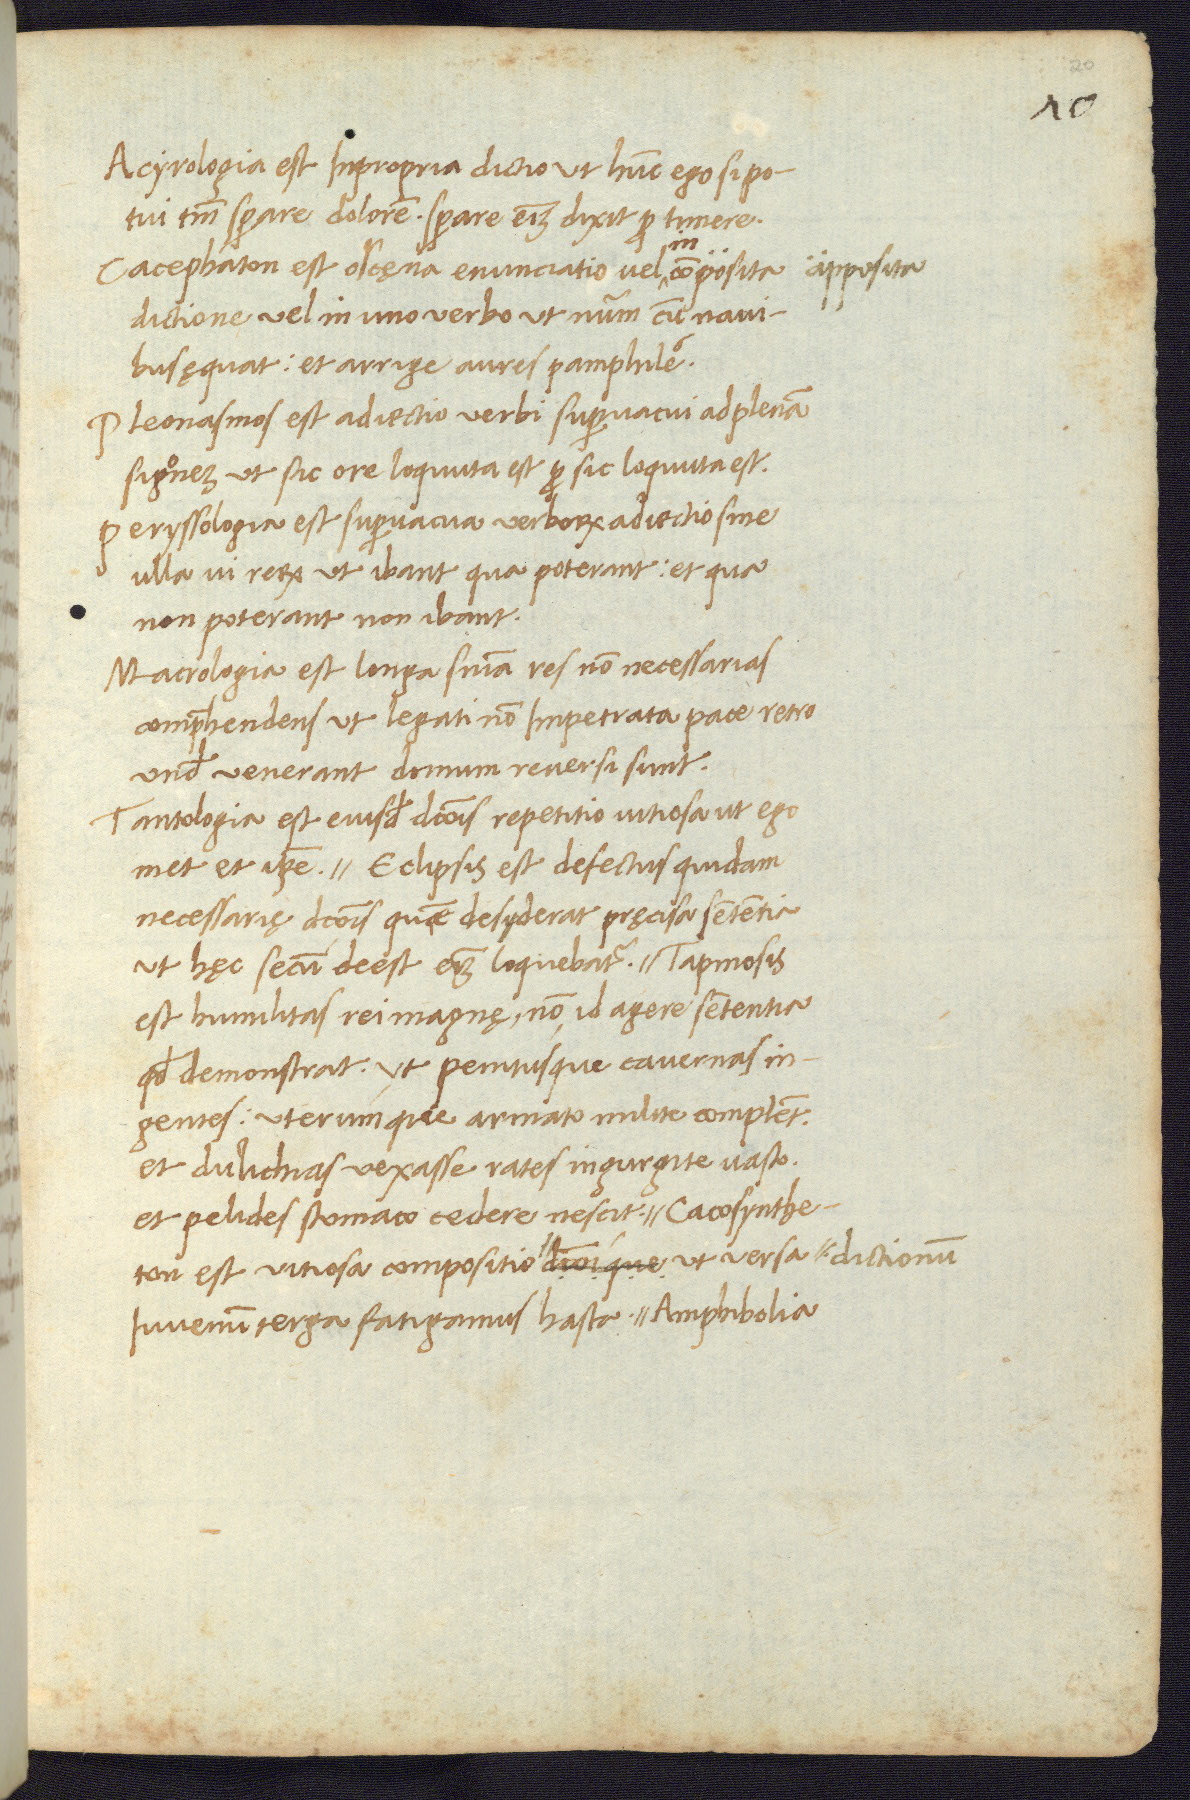 20
10
Acyrologia est Inpropria dictio ut hūc ego si po-
tui tm̄ sꝑare dolorē. sꝑare eīꝫ dixit ꝓ timere.
Cacephaton est obscęna enunciatio vel in cōposita apposita
dictione vel in uno verbo ut nūam cū navi-
bus ęquat: et arrige aures pamphile.
Pleonasmos est adiectio verbi suꝑuacui ad plenā
sigͦneꝫ ut sic ore loquuta est ꝓ sic loquuta est.
Peryssologia est suꝑuacua verboꝝ adiectio sine
ulla vi reꝝ ut ibant qua poterant: et qua
non poterant non ibant.
Macrologia est longa sniā res nō necessarias
comp̄hendens ut legati nō Impetrata pace retro
und̄ venerant domum reversi sunt.
Tautologia est eiusd̄ dcōis repetitio vitiosa ut ego
met et ip̄e. // Eclipsis est defectus quidam
necessarię dcōis quā desyderat pręcisa sētētia
ut hęc secū deest eīꝫ loquebat᷑. // Tapinosis
est humilitas rei magnę, nō id agere sētentia
qd̄ demonstrat. ut penitusque cavernas in-
gentes: uterumque armato milite complēt.
et dulichias vexasse rates in gurgite vasto.
et pelides stomaco cedere nescit. // Cacosynthe-
ton est vitiosa compositio dictionū ut versa
Iuvenū terga fatigamus hasta. // Amphibolia